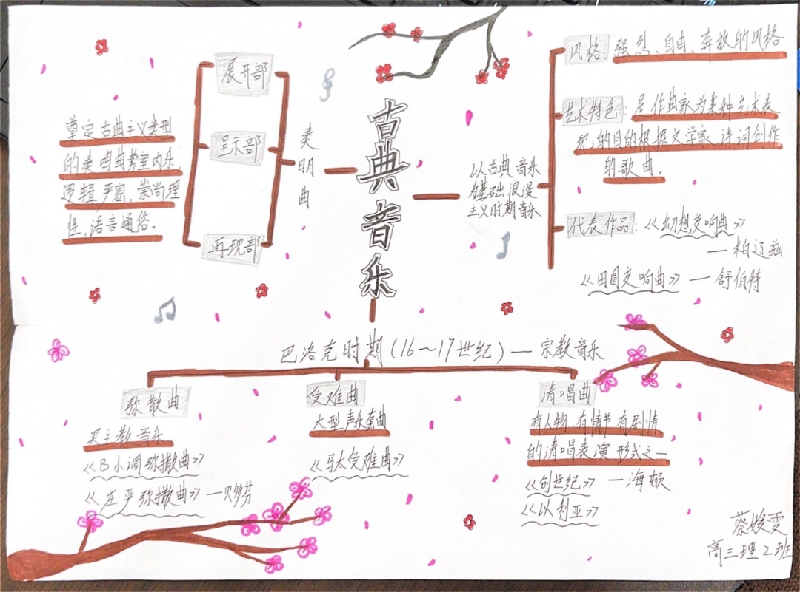 古典音乐
奏明曲
展开部
呈示部
再现部
奠定古典主义类型
的奏鸣曲
逻辑严密,崇尚理
性,语言通俗。
以古典音乐
为基础,浪漫
主义时期音乐
风格:强烈、自由、奔放的风格
艺术特色:是作曲家为某种艺术表
现的目的根据文学家、诗词创作
的歌曲.
代表作品:《幻想交响曲》
—柏辽兹
《田园交响曲》—舒伯特
巴洛克时期(16~17世纪)—宗教音乐
弥散曲
天主教音乐
《B小调弥撒曲》
《庄严弥撒曲》—贝多芬
受难曲
大型声乐套曲
《马太受难曲》
清唱曲
有人物 有情节 有剧情
的清唱表演形式之一
《创世纪》—海顿
《以利亚》
高三理2班